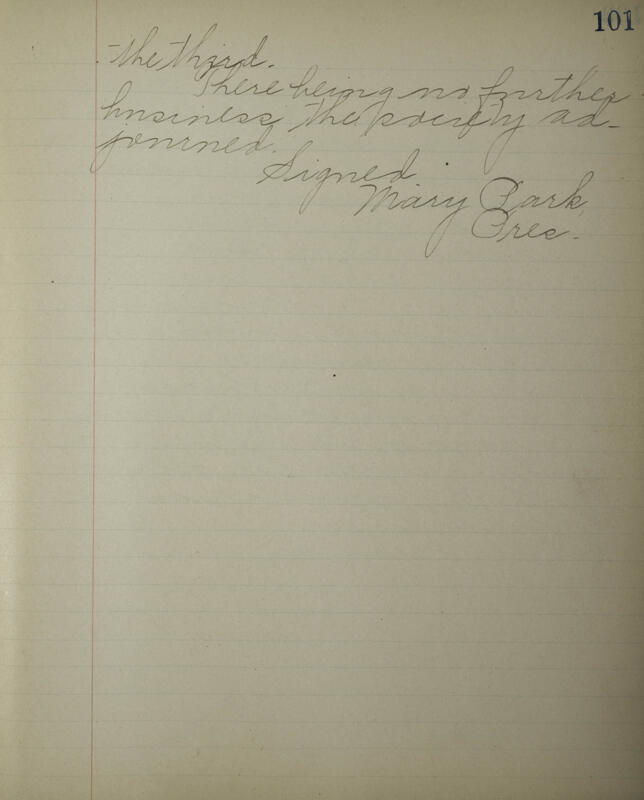 101
the third.
There being no further
business the society ad-
journed.
Signed
Mary Park,
Pres.